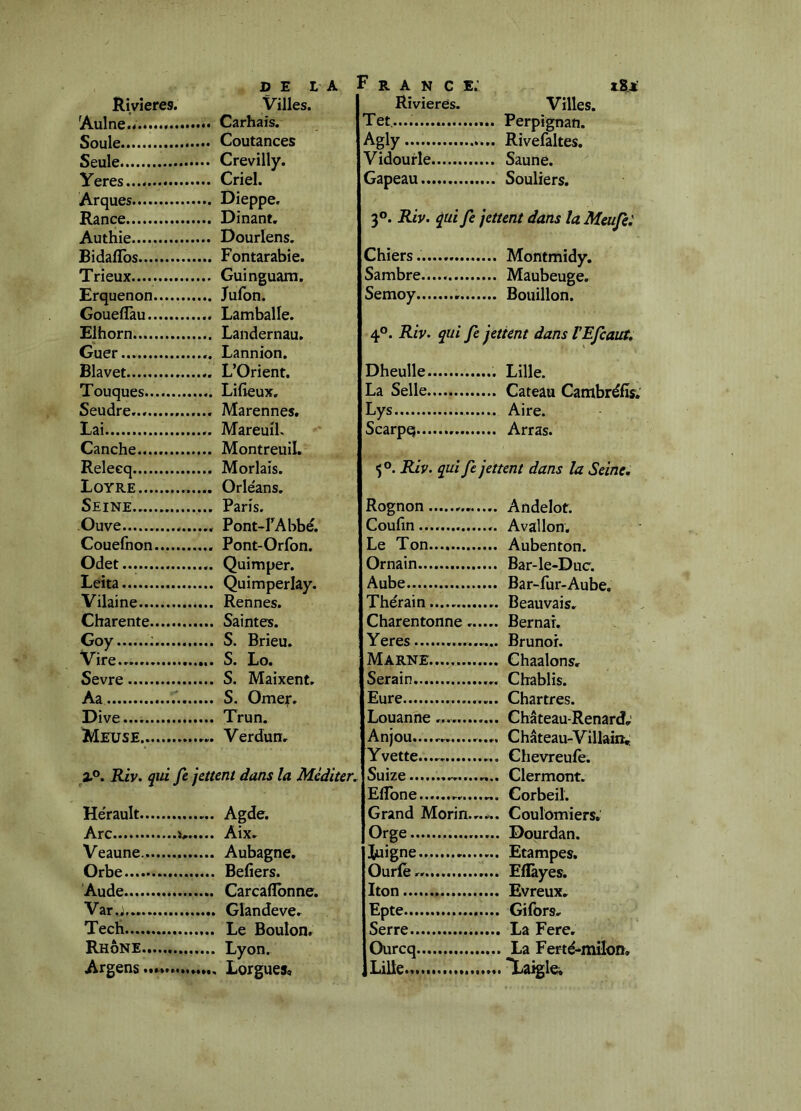 DE LA FRANCE. 181
Rivieres. Villes.
Aulne............... Carhais.
Soule................. Coutances
Seule................. Crevilly.
Yeres................ Criel.
Arques............... Dieppe.
Rance................ Dinant.
Authie............... Dourlens.
Bidaſſos.............. Fontarabie.
Trieux............... Guinguam.
Erquenon........... Juſon.
Goueſſau............ Lamballe.
Elhorn............... Landernau.
Guer................. Lannion.
Blavet................ L'Orient.
Touques............. Liſieux.
Seudre............... Marennes.
Lai.................... Mareuil.
Canche.............. Montreuil.
Releeq............... Morlais.
LOYRE.............. Orléans.
SEINE............... Paris.
Ouve................. Pont-l'Abbé.
Coueſnon........... Pont-Orſon.
Odet................. Quimper.
Leita................. Quimperlay.
Vilaine.............. Rennes.
Charente............ Saintes.
Goy.................. S. Brieu.
Vire.................. S. Lo.
Sevre................ S. Maixent.
Aa.................... S. Omer.
Dive................. Trun.
MEUSE............. Verdun.
2°. Riv. qui ſe jettent dans la Méditer.
Hérault.............. Agde.
Arc................... Aix.
Veaune.............. Aubagne.
Orbe................. Beſiers.
Aude................. Carcaſſonne.
Var................... Glandeve.
Tech................. Le Boulon.
RHÔNE.............. Lyon.
Argens.............. Lorgues.
Rivieres. Villes.
Tet................... Perpignan.
Agly................. Riveſaltes.
Vidourle............ Saune.
Gapeau.............. Souliers.
3°. Riv. qui ſe jettent dans la Meuſe.
Chiers............... Montmidy.
Sambre.............. Maubeuge.
Semoy............... Bouillon.
4°. Riv. qui ſe jettent dans l'Eſcaut.
Dheulle............. Lille.
La Selle............. Cateau Cambréſis.
Lys................... Aire.
Scarpe............... Arras.
5°. Riv. qui ſe jettent dans la Seine.
Rognon............. Andelot.
Couſin............... Avallon.
Le Ton............. Aubenton.
Ornain............... Bar-le-Duc.
Aube................. Bar-ſur-Aube.
Thérain............. Beauvais.
Charentonne...... Bernai.
Yeres................ Brunoi.
MARNE............. Chaalons.
Serain................ Chablis.
Eure.................. Chartres.
Louanne............ Château-Renard.
Anjou................ Château-Villain.
Yvette............... Chevreuſe.
Suize................. Clermont.
Eſſone............... Corbeil.
Grand Morin...... Coulomiers.
Orge................. Dourdan.
Juigne............... Etampes.
Ourſe................ Eſſayes.
Iton.................. Evreux.
Epte.................. Giſors.
Serre................. La Fere.
Ourcq................ La Ferté-milon.
Lille.................. Laigle.